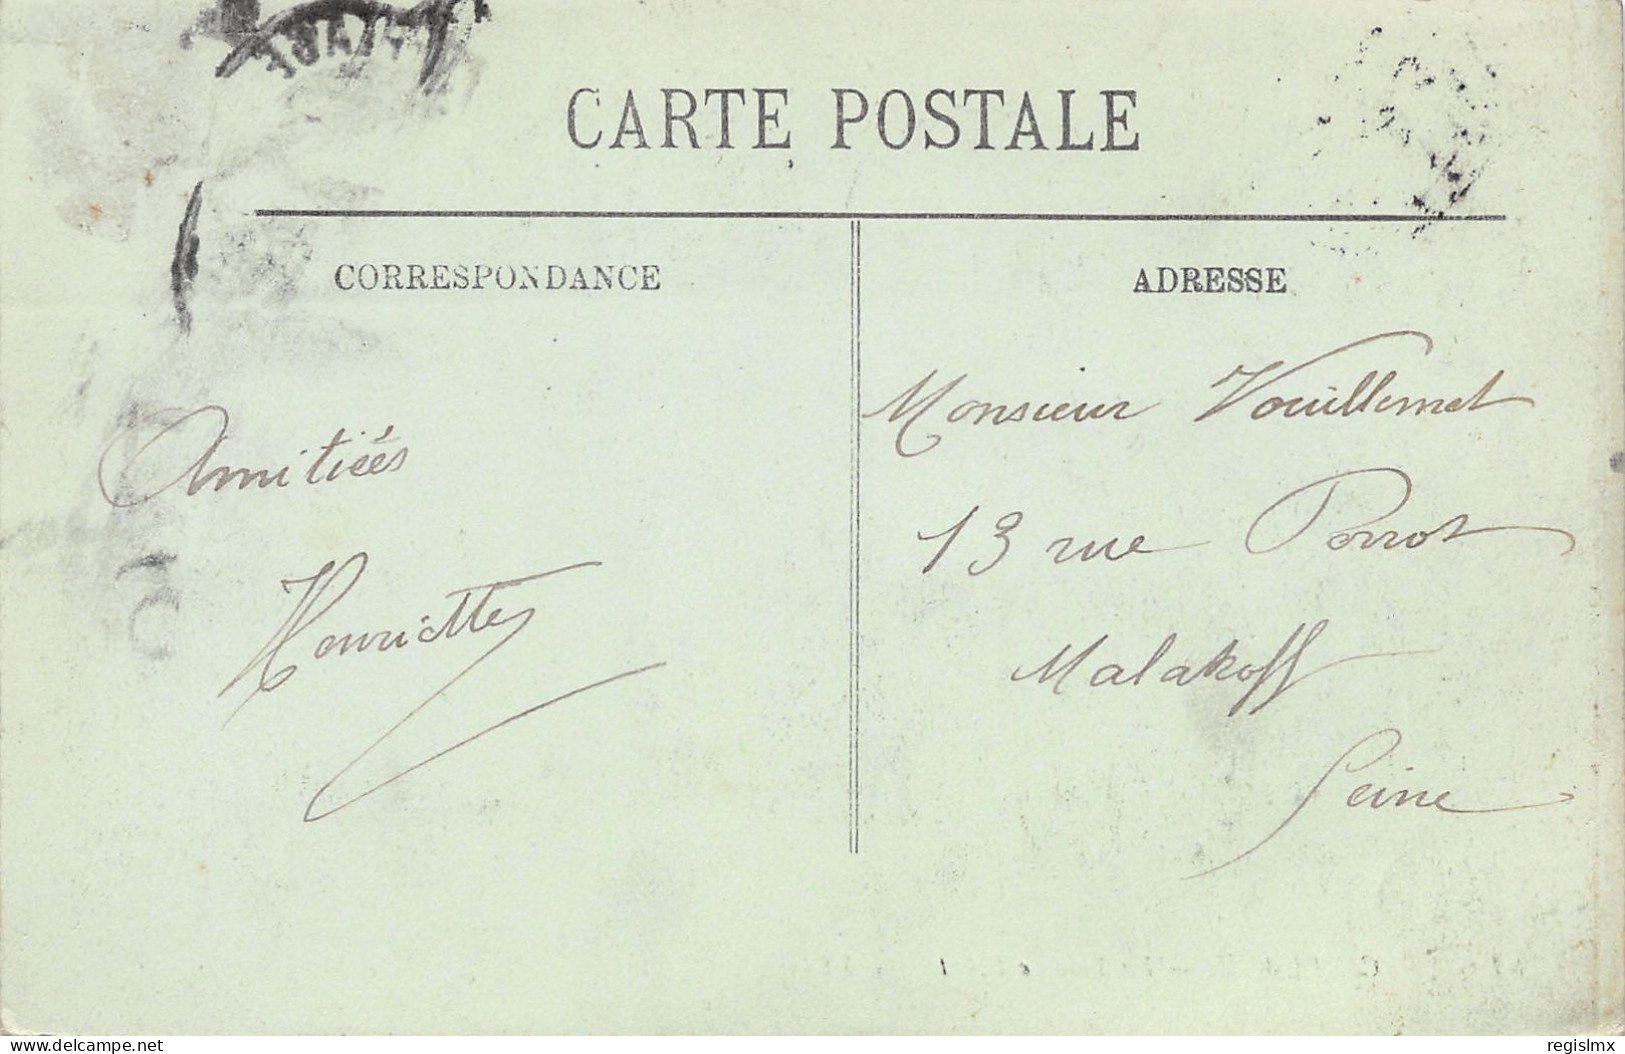 CARTE POSTALE
CORRESPONDANCE
ADRESSE
Amitiées
Henriette
Monsieur Vouillemet
13 rue Perrot
Malakoff
Seine
www.delcampe.net
regislmx